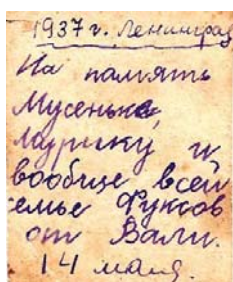 1937 г. Ленинград
На память
Мусеньке,
Лаурику и
вообще всей
семье Фуксов
от Вали.
14 мая.